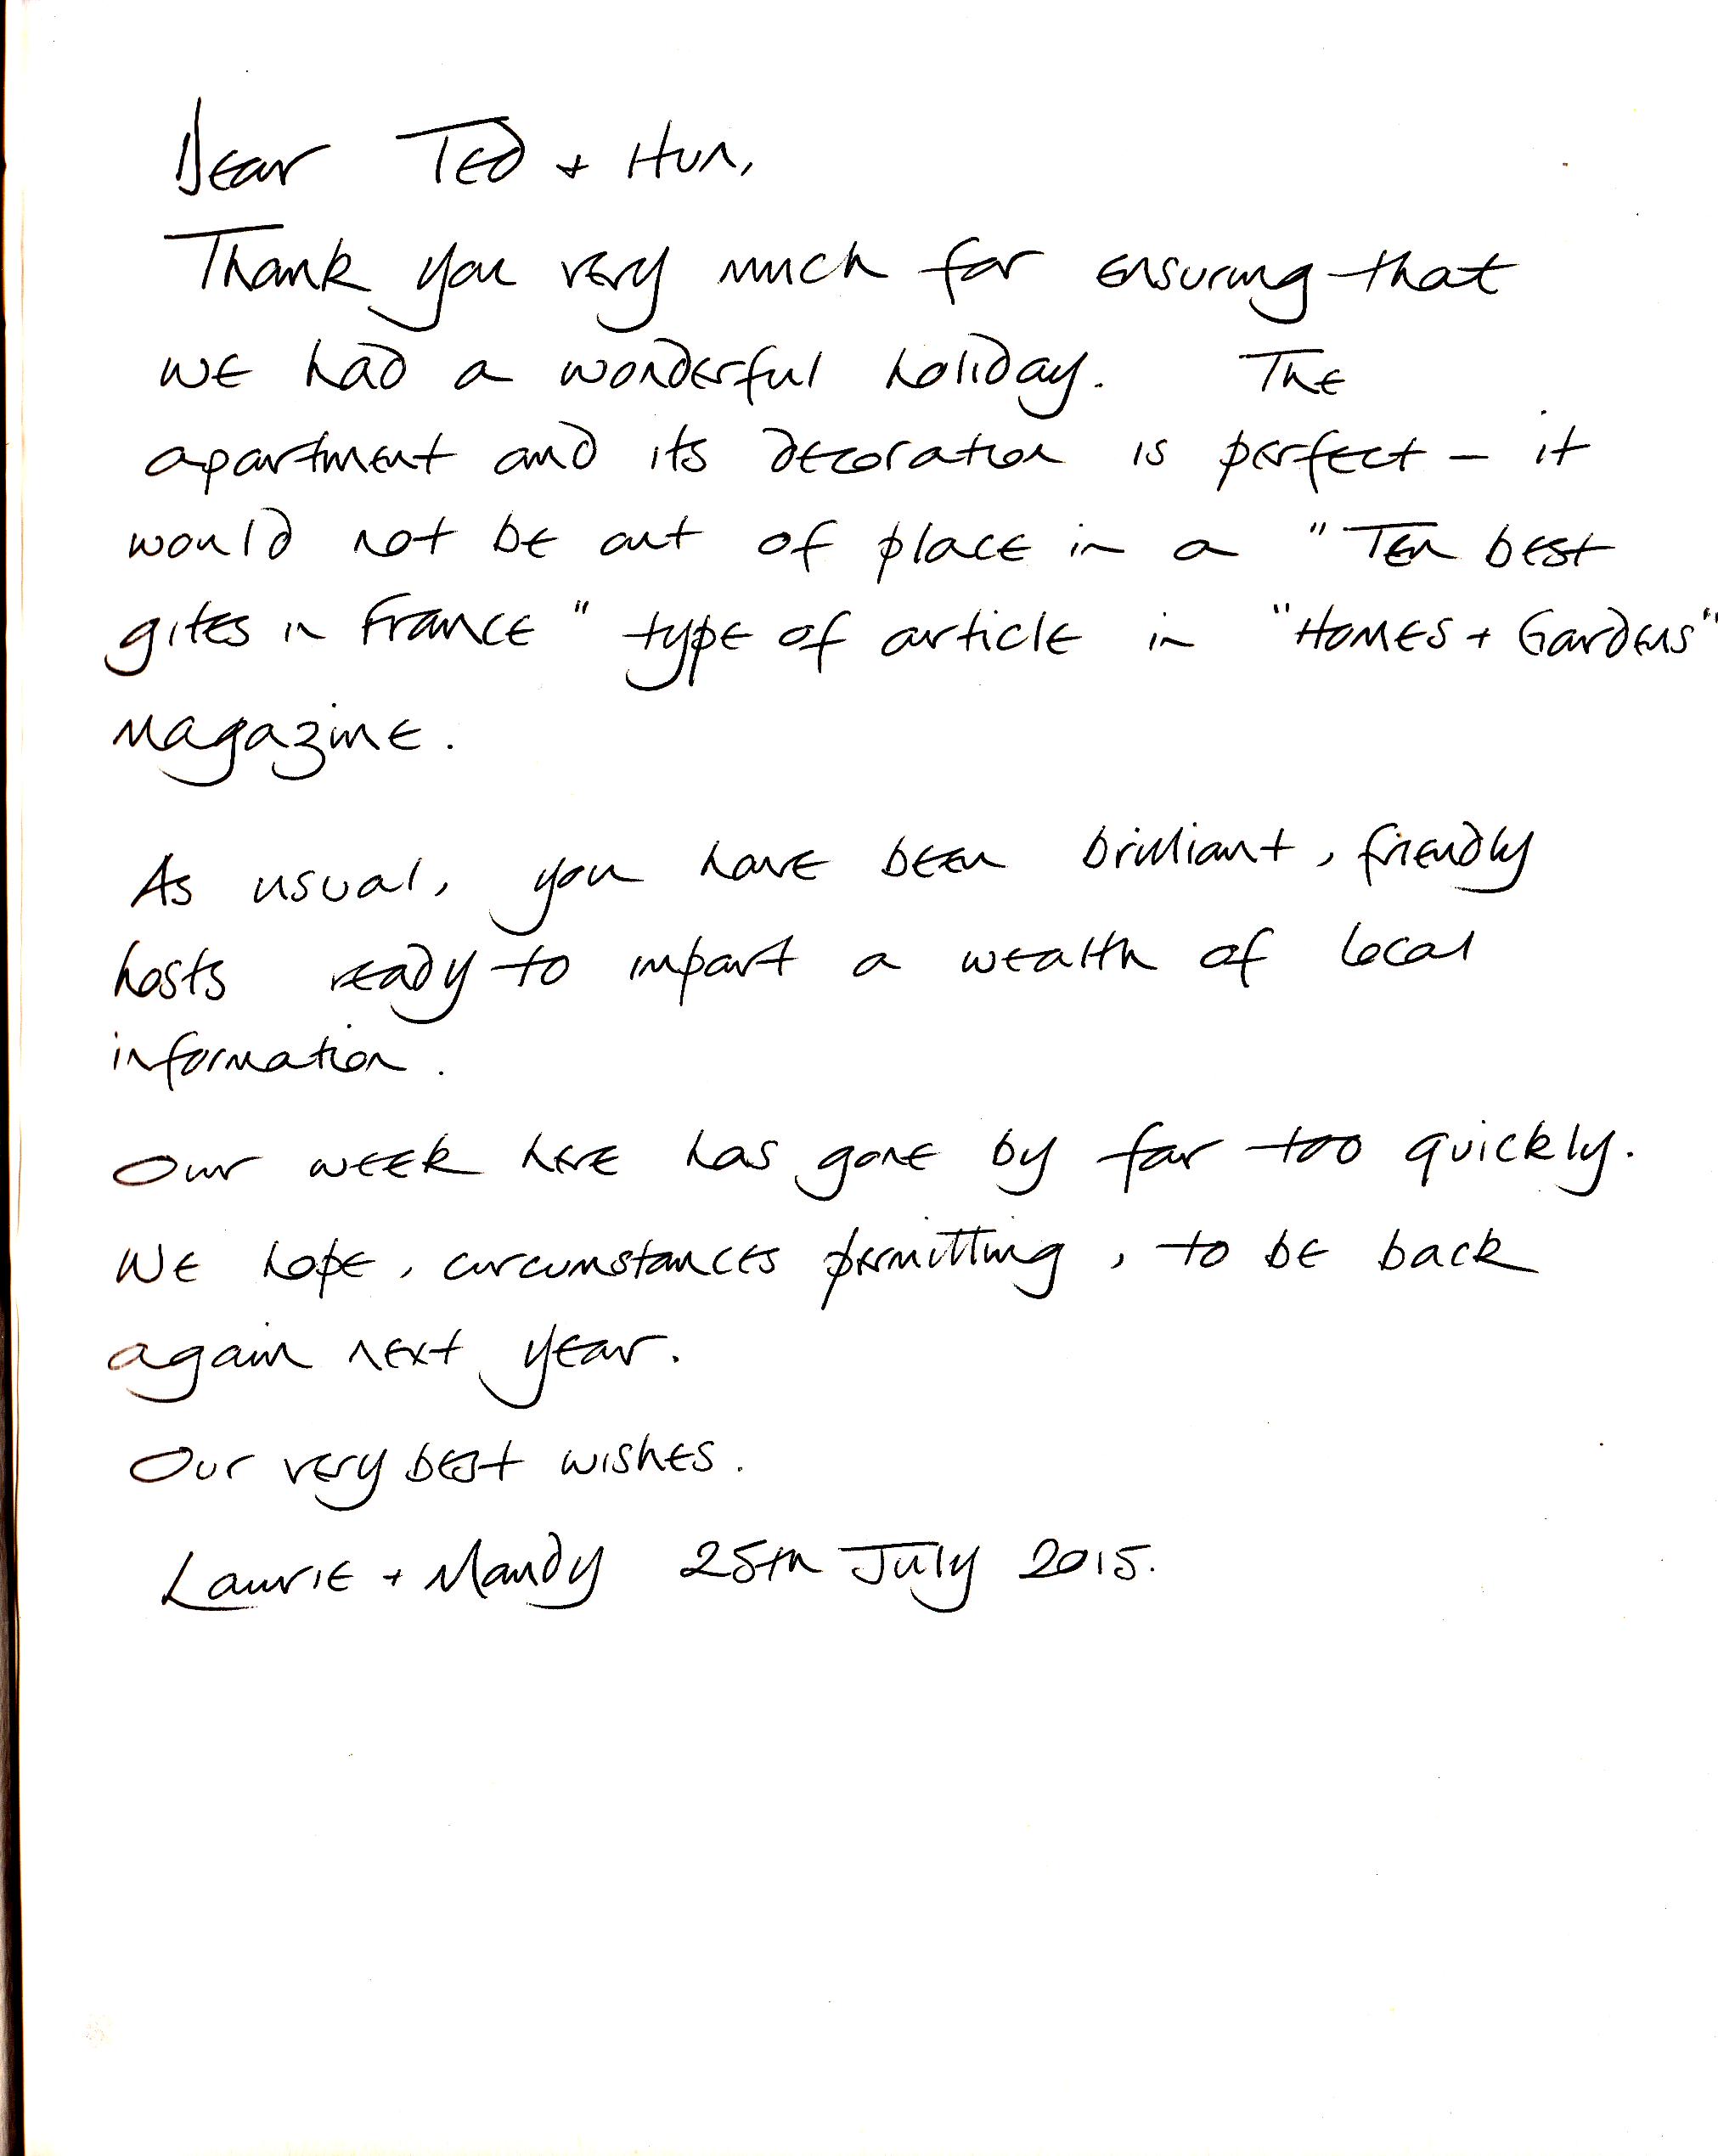 Dear Ted + Hun,
Thank you very much for ensuring that
we had a wonderful holiday. The
apartment and its decoration is perfect - it
would not be out of place in a "Ten best
gites in France" type of article in "Homes + Gardens"
magazine.
As usual, you have been brilliant, friendly
hosts ready to impart a wealth of local
information.
Our week here has gone by far too quickly.
We hope, circumstances permitting, to be back
again next year.
Our very best wishes.
Laurie + Mandy 25th July 2015.